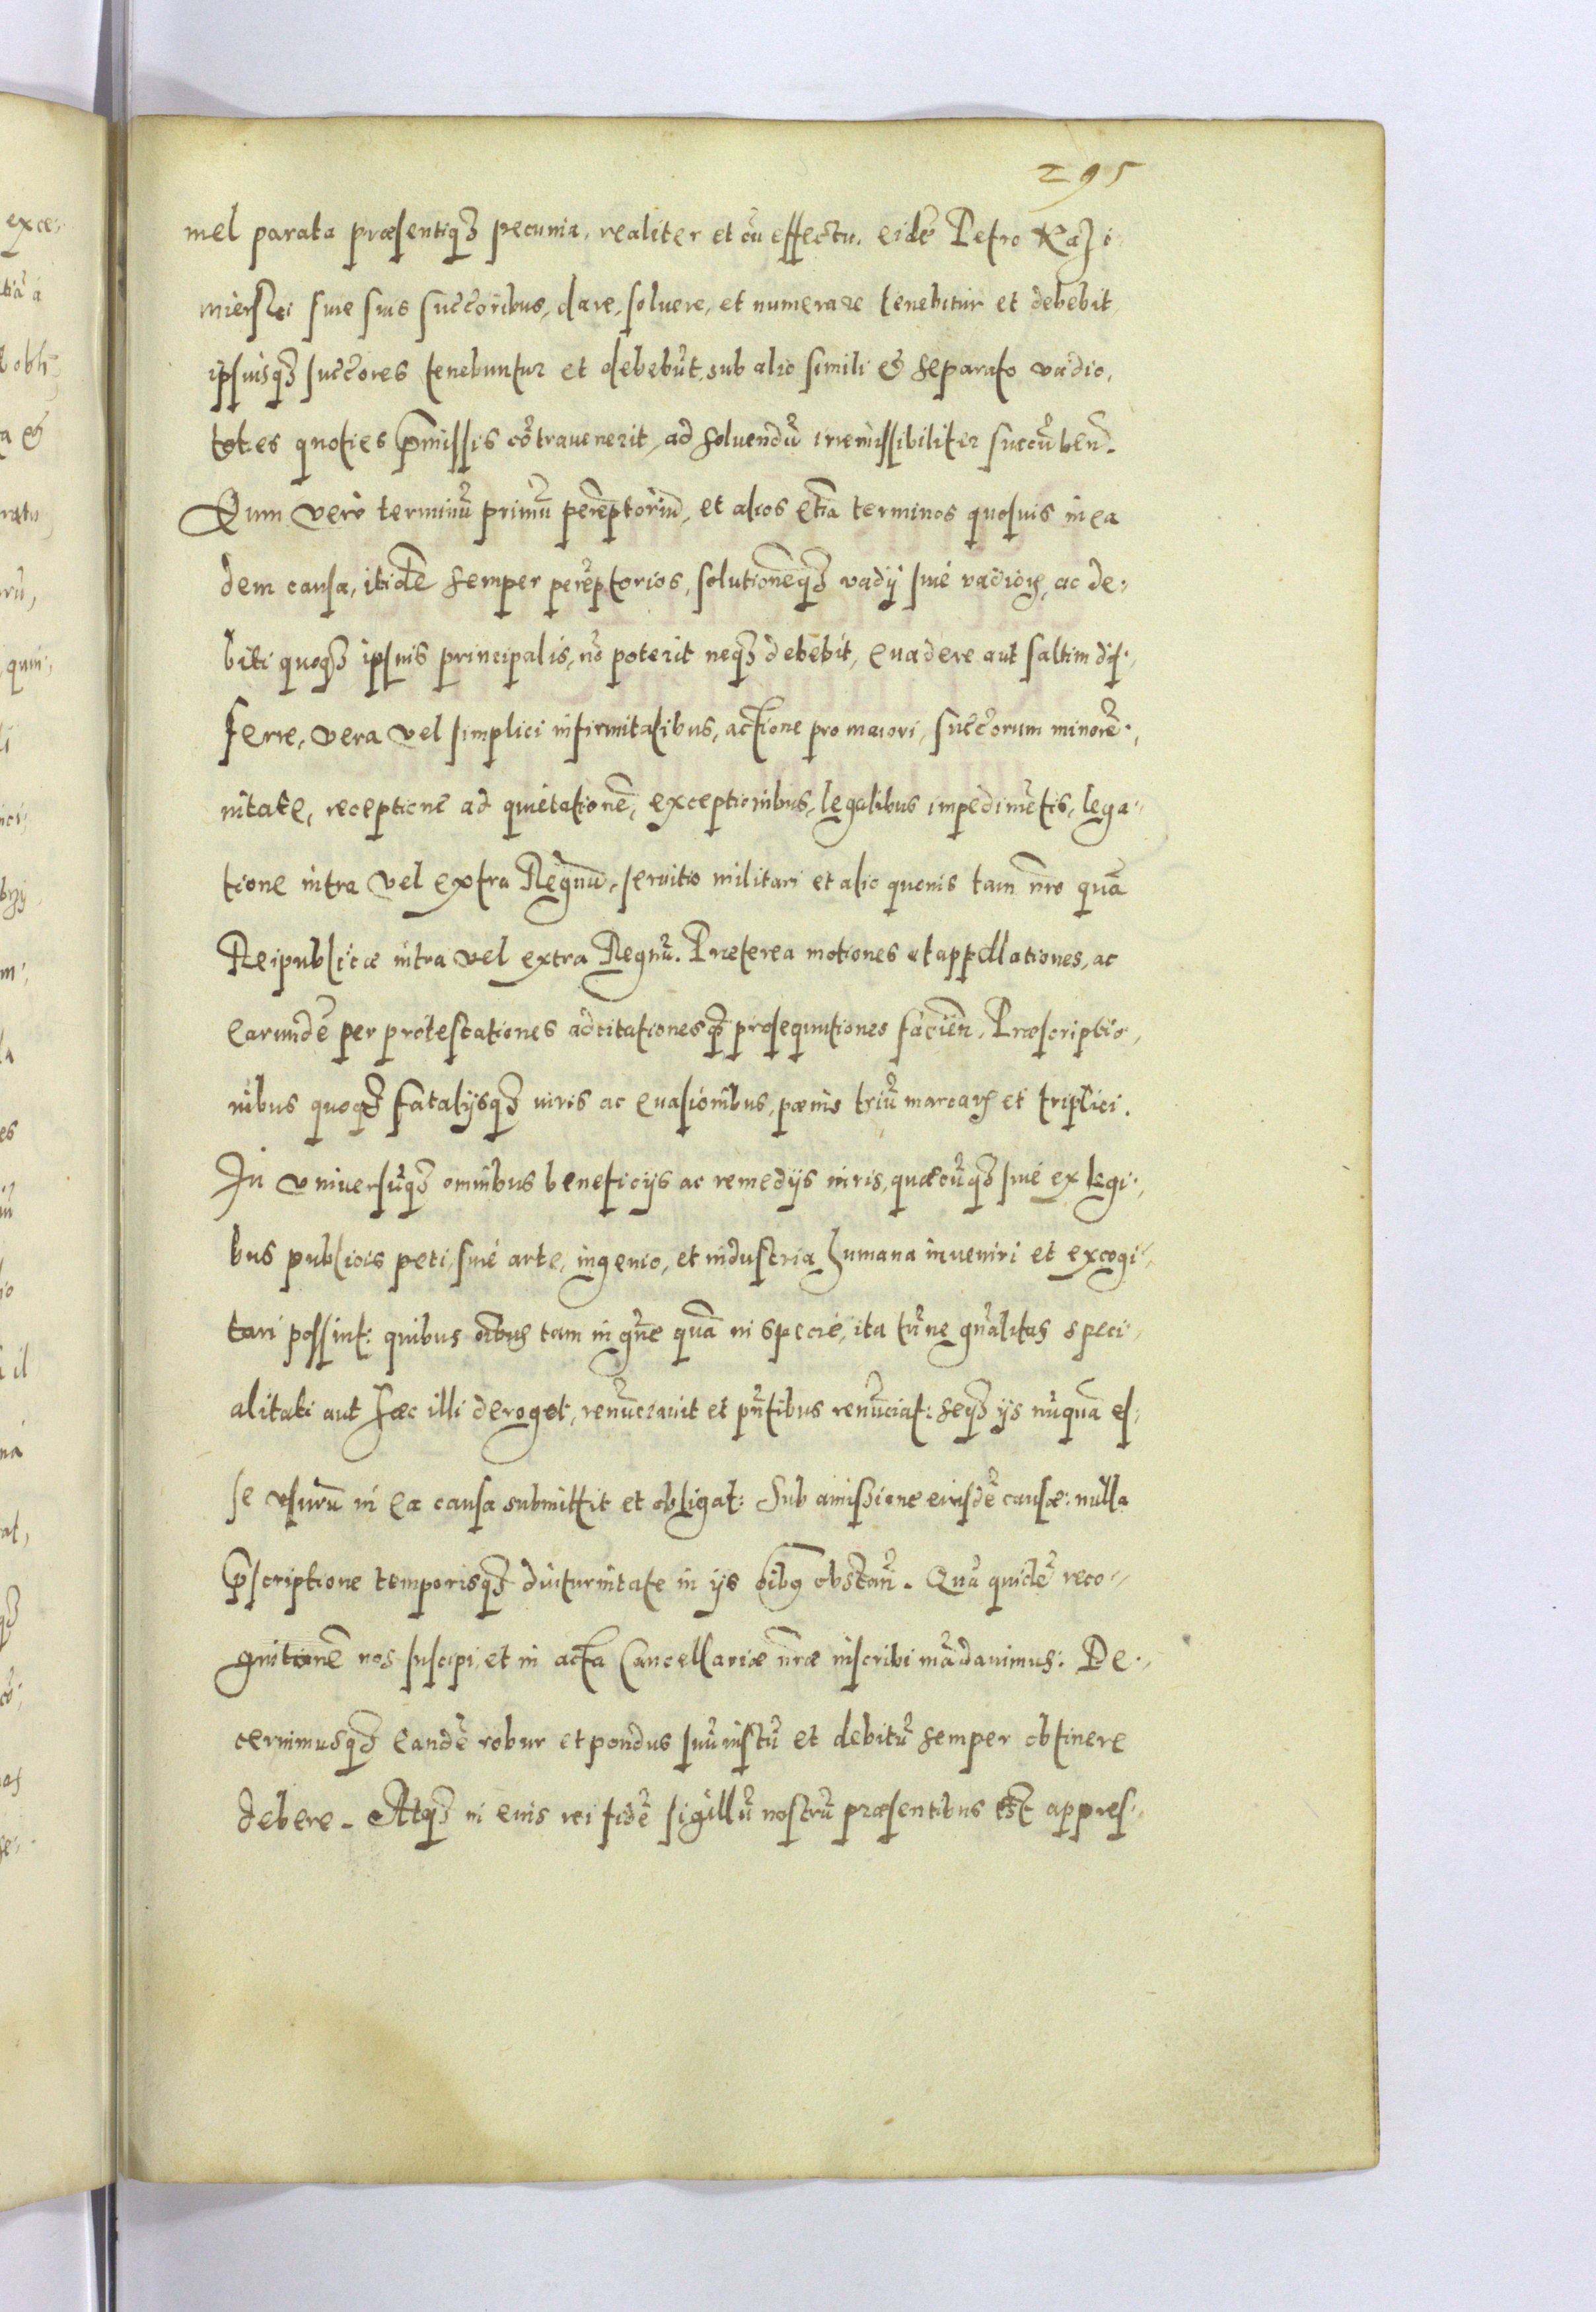 295
mel parata præsentiq₃ pecunia, realiter et cũ effectu, eidẽ Petro Kazi
mierski siue suis succ̃oribus, dare, soluere, et numerare tenebitur et debebit
ipsiusq₃ succ̃ores tenebuntur et debebũt, sub alio simili & separato vadio,
toties quoties p̃missis cõtrauenerit, ad soluendũ irremissibiliter succũbeñ.
Qum verò terminũ primũ perẽptoriũ, et alios etiã terminos quosuis in ea
dem causa, itidẽ semper perẽptorios, solutionẽq₃ vadÿ siué vadioꝝ, ac de:
biti quoq₃ ipsius principalis, nõ poterit neq₃ debebit, euadere aut saltim dif:
ferre, vera vel simplici infirmitatibus, actione pro maiori, succ̃orum minorẽ:
nitate, receptione ad quietationẽ, exceptionibus, legalibus impedimẽtis, lega:
tione intra vel extra Regnũ, seruitio militari et alio quouis tam ñro quã
Reipublicæ intra vel extra Regnũ. Præterea motiones et appellationes, ac
earundẽ per protestationes adcitationesq₃ prosequutiones facieñ. Præscriptio
nibus quoq₃ fatalÿsq₃ iuris ac euasionibus, pœnis triũ marcaꝝ et triplici.
In vniuersũq₃ omnibus beneficÿs ac remedÿs iuris, quæcũq₃ siué ex legi:
bus publicis peti, siué arte, ingenio, et industria humana inueniri et excogi:
tari possint: quibus oĩbus tam in gñe quã in specie, ita tñ ne gñalitas speci
alitati aut hæc illi deroget, renũciauit et pñtibus renũciat: seq₃ ÿs nũquã es
se vsurũ in ea causa submittit et obligat: Sub amissione eiusdẽ causæ: nulla
p̃scriptione temporisq₃ diuturnitate in ÿs oĩbꝰ obstañ. Quã quidẽ reco:
gnitionẽ nos suscipi, et in acta Cancellariæ ñræ inscribi mãdauimus: De:
cernimusq₃ eandẽ robur et pondus suũ iustũ et debitũ semper obtinere
debere. Atq₃ in eius rei fidẽ sigillũ nostrũ præsentibus est appres: